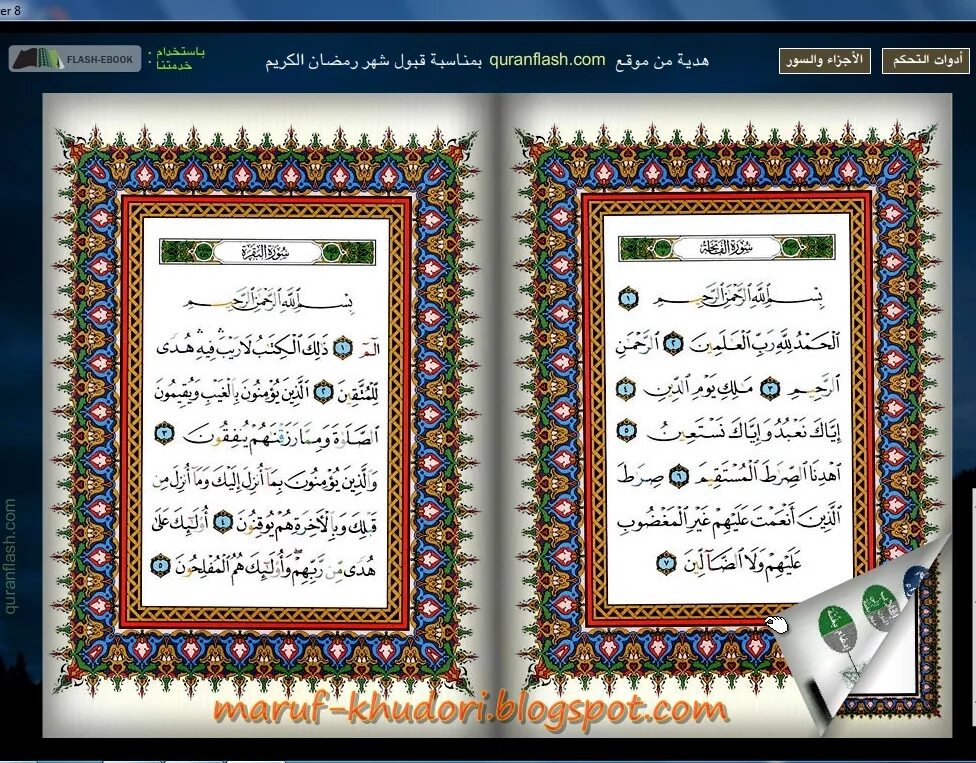 er 8
أدوات التحكم
الأجزاء والسور
هدية من موقع quranflash.com بمناسبة قبول شهر رمضان الكريم
باستخدام :
خدمتنا
FLASH-EBOOK
سُورَةُ الفَاتِحَة
بِسْمِ ٱللَّهِ ٱلرَّحْمَٰنِ ٱلرَّحِيمِ ١
ٱلْحَمْدُ لِلَّهِ رَبِّ ٱلْعَٰلَمِينَ ٢ ٱلرَّحْمَٰنِ
ٱلرَّحِيمِ ٣ مَٰلِكِ يَوْمِ ٱلدِّينِ ٤
إِيَّاكَ نَعْبُدُ وَإِيَّاكَ نَسْتَعِينُ ٥
ٱهْدِنَا ٱلصِّرَٰطَ ٱلْمُسْتَقِيمَ ٦ صِرَٰطَ
ٱلَّذِينَ أَنْعَمْتَ عَلَيْهِمْ غَيْرِ ٱلْمَغْضُوبِ
عَلَيْهِمْ وَلَا ٱلضَّآلِّينَ ٧
سُورَةُ البَقَرَة
بِسْمِ ٱللَّهِ ٱلرَّحْمَٰنِ ٱلرَّحِيمِ
الٓمٓ ١ ذَٰلِكَ ٱلْكِتَٰبُ لَا رَيْبَ ۛ فِيهِ ۛ هُدًى
لِّلْمُتَّقِينَ ٢ ٱلَّذِينَ يُؤْمِنُونَ بِٱلْغَيْبِ وَيُقِيمُونَ
ٱلصَّلَوٰةَ وَمِمَّا رَزَقْنَٰهُمْ يُنفِقُونَ ٣
وَٱلَّذِينَ يُؤْمِنُونَ بِمَآ أُنزِلَ إِلَيْكَ وَمَآ أُنزِلَ مِن
قَبْلِكَ وَبِٱلْءَاخِرَةِ هُمْ يُوقِنُونَ ٤ أُو۟لَٰٓئِكَ عَلَىٰ
هُدًى مِّن رَّبِّهِمْ ۖ وَأُو۟لَٰٓئِكَ هُمُ ٱلْمُفْلِحُونَ ٥
quranflash.com
maruf-khudori.blogspot.com